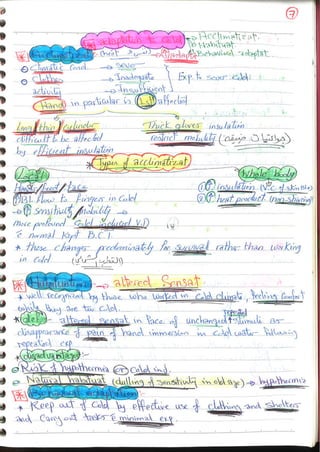 7
adaptation to cold
a- Acclimatizat.
b- Habituat
Behavioural adaptat
① Climatic cond → severe
② Clothes → Inadequate
activity → Insufficient
Exp. to severe cold
Hand in particular is affected
Long/thin/cylinder
Thick gloves insulation
difficult to be affected
restrict mobility
by efficient insulation
Types of acclimatizat
Local
Whole body
Hand/foot/face
① insulation (V.C of skin)
Bld. flow to fingers in cold
② heat product (non-shivering)
sensitivity/mobility →
more profound cold induced V.D
normal kept B.C.T
* these changes predominately for survival rather than working
in cold
Habituat → altered Sensat
* well recognized by those who worked in cold climate, feeling comfort
while they are too cold.
def: altered sensat in face of unchanged stimuli as
repeated
disappearance of pain of hand immersion in cold water following
repeated exp.
disadvantages:
Risk of hypothermia cold ind.
Natural habituat (dulling of sensitivity in old age) → hypothermia
Behavioural adaptation:
* Keep out of cold by effective use of clothing and shelters
and carry out tasks minimal exp.